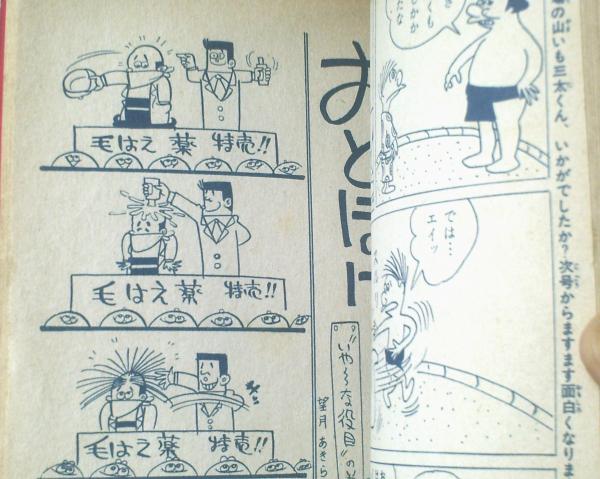 場の山いも三太くん、いかがでしたか？次号からますます面白くなりま
では…
エイッ
おとぼけ
"いや～な役目"の
望月あきら
毛はえ薬 特売!!
毛はえ薬 特売!!
毛はえ薬 特売!!